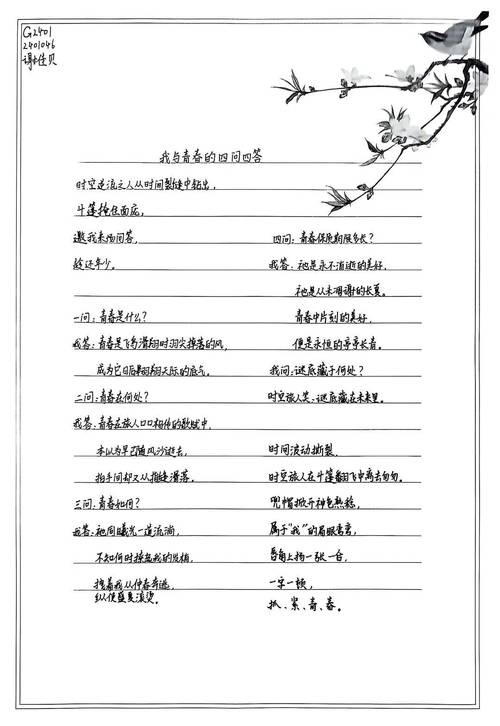 G2401
2401046
谢佳贝
我与青春的四问四答
时空逆流之人从时间裂缝中钻出，
斗篷掩住面庞，
邀我来场问答，
趁还年少。
一问：青春是什么？
我答：青春是飞鸟滑翔时羽尖掉落的风，
成为它日后翱翔天际的底气。
二问：青春在何处？
我答：青春在旅人口口相传的歌赋中，
本以为早已随风沙逝去，
抬手间却又从指缝滑落。
三问：青春如何？
我答：祂同曦光一道流淌，
不知何时撩起我的发梢，
拽着我从仲春奔逃，
纵使盛夏滚烫。
四问：青春保质期限多长？
我答：祂是永不消逝的美好，
祂是从未凋谢的长夏。
青春中片刻的美好，
便是永恒的亭亭长青。
我问：谜底藏于何处？
时空旅人笑：谜底藏在未来里。
时间波动撕裂，
时空旅人在斗篷翻飞中离去匆匆。
兜帽掀开神色熟稔，
属于“我”的眉眼弯弯，
唇角上扬一张一合，
一字一顿，
抓、紧、青、春。